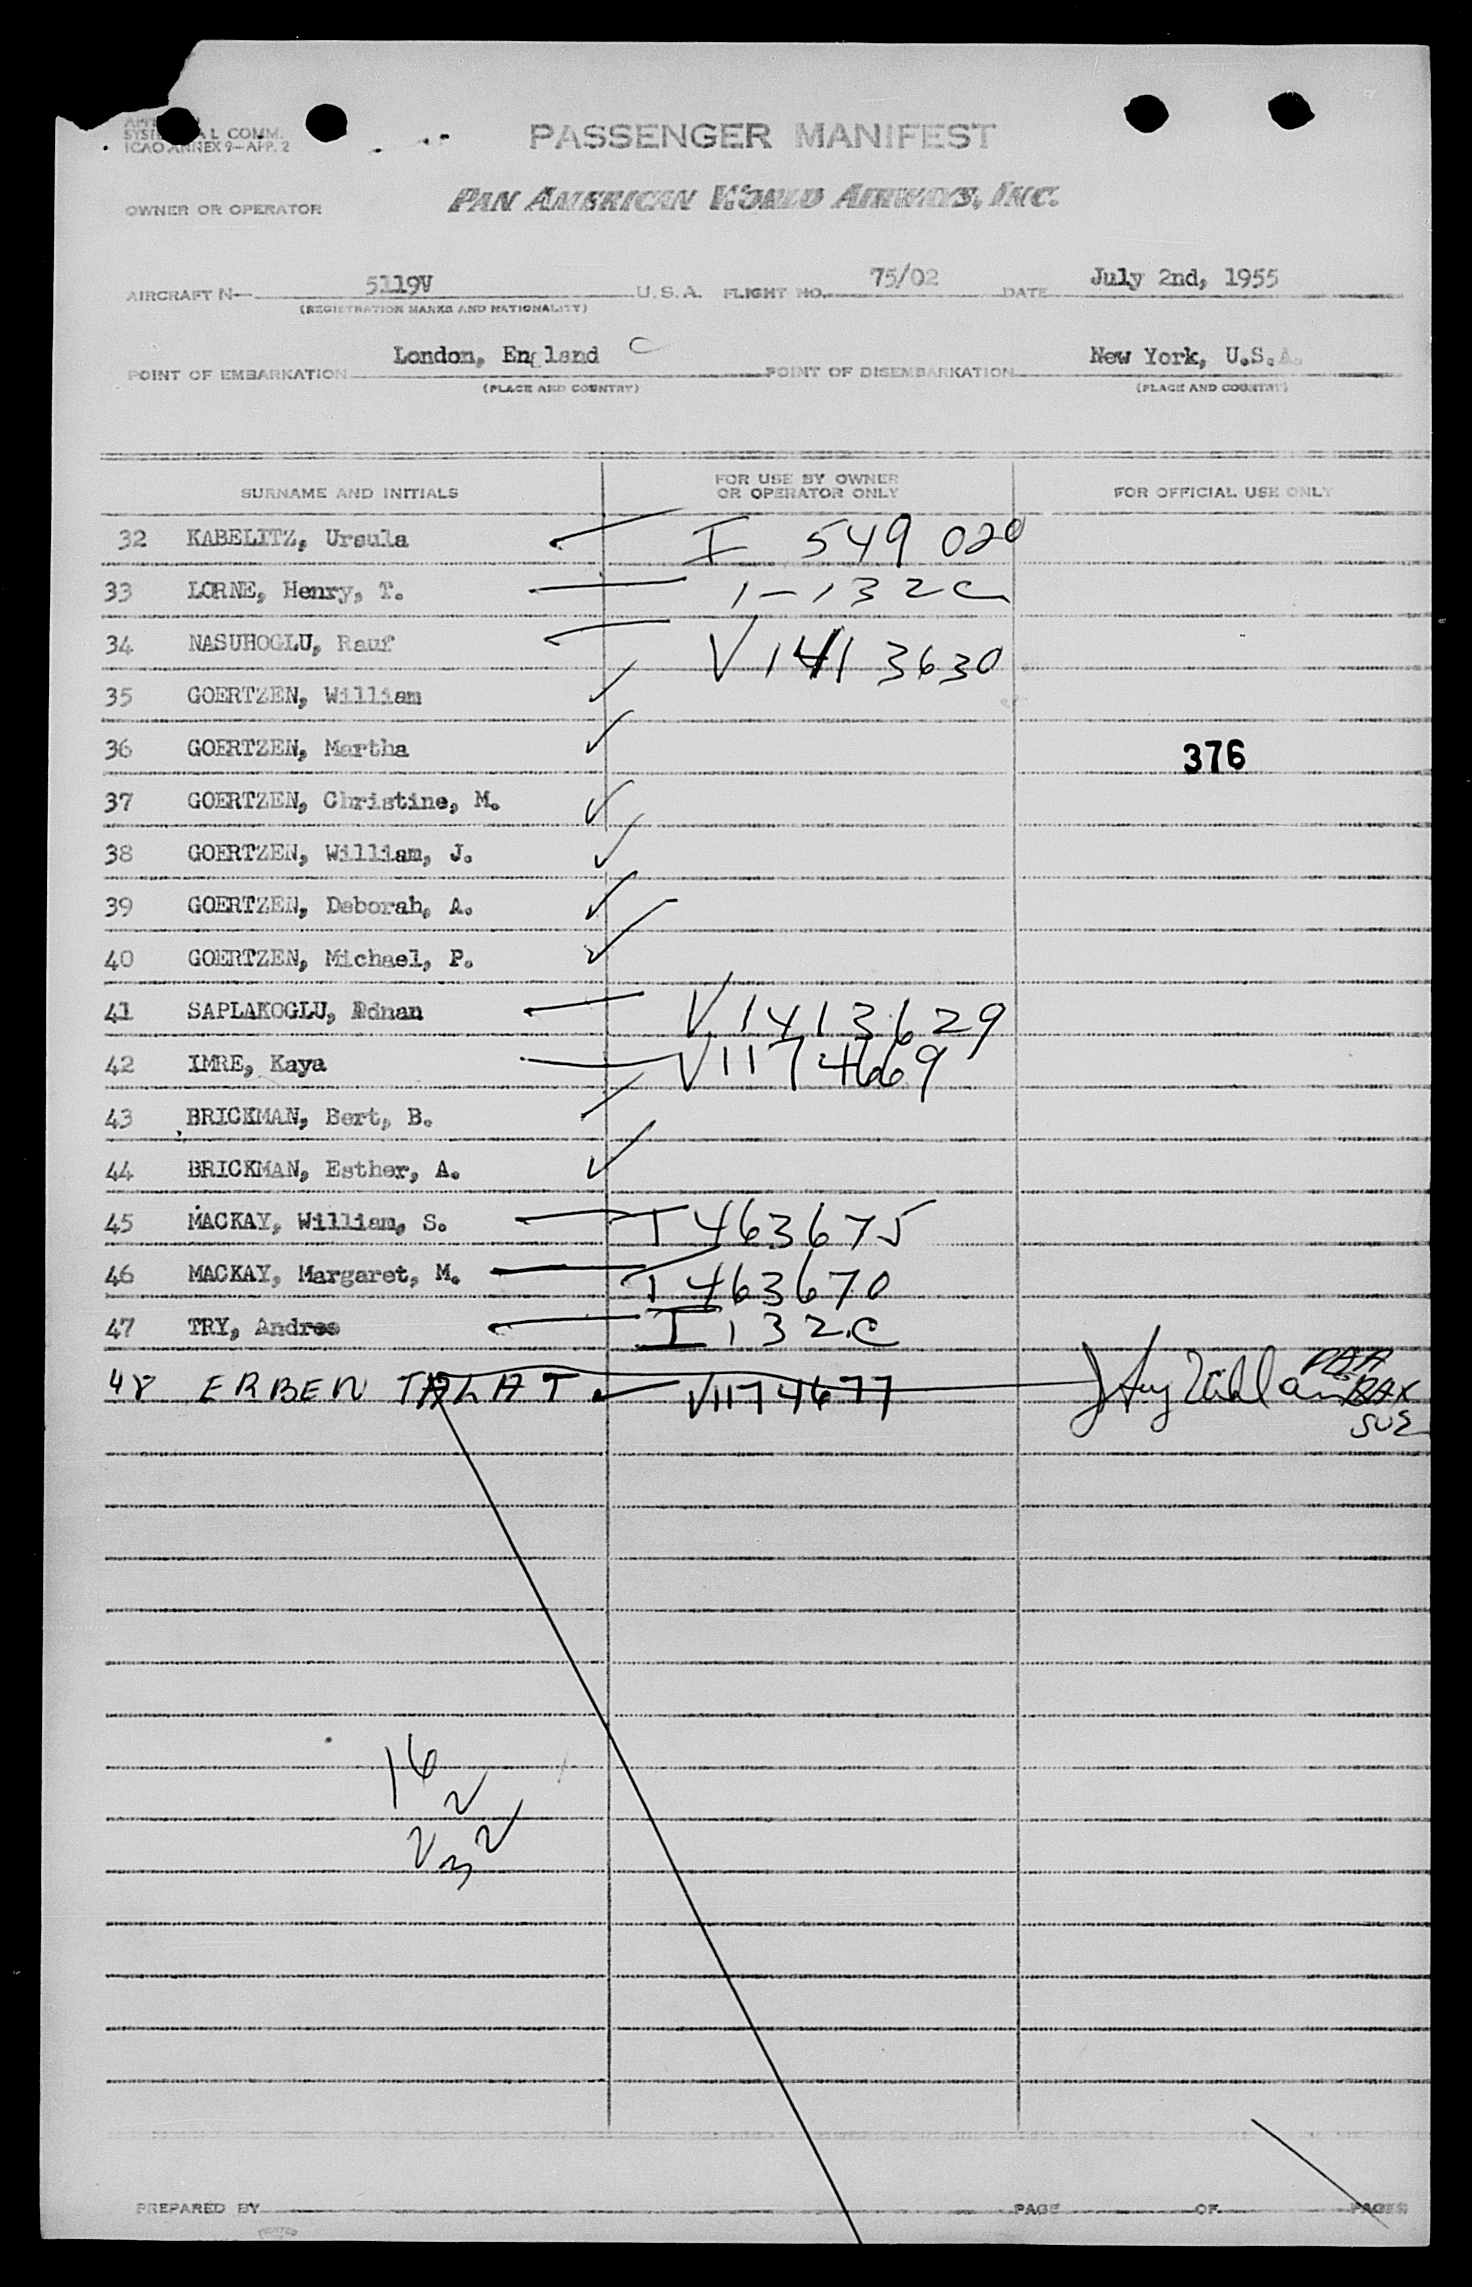 ICAO ANNEX 9—APP. 2
PASSENGER MANIFEST
OWNER OR OPERATOR PAN AMERICAN WORLD AIRWAYS, INC.
AIRCRAFT N— 5119V U.S.A. FLIGHT NO. 75/02 DATE July 2nd, 1955
(REGISTRATION MARKS AND NATIONALITY)
POINT OF EMBARKATION London, England C POINT OF DISEMBARKATION New York, U.S.A.
(PLACE AND COUNTRY) (PLACE AND COUNTRY)
SURNAME AND INITIALS FOR USE BY OWNER OR OPERATOR ONLY FOR OFFICIAL USE ONLY
32 KABELITZ, Ursula I 549 020
33 LORNE, Henry, T. 1-132C
34 NASUHOGLU, Rauf V1413630
35 GOERTZEN, William
36 GOERTZEN, Martha 376
37 GOERTZEN, Christine, M.
38 GOERTZEN, William, J.
39 GOERTZEN, Deborah, A.
40 GOERTZEN, Michael, P.
41 SAPLAKOGLU, Adnan V1413629
42 IMRE, Kaya V1174669
43 BRICKMAN, Bert, B.
44 BRICKMAN, Esther, A.
45 MACKAY, William, S. T463675
46 MACKAY, Margaret, M. T463670
47 TRY, Andree I 132C
48 ERBEN TALAT V1174677 PAA
16
2
2 2
3
PREPARED BY PAGE OF PAGES